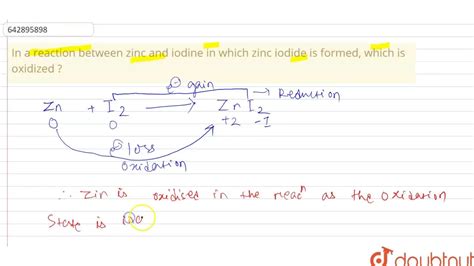 642895898
In a reaction between zinc and iodine in which zinc iodide is formed, which is
oxidized ?
⊖ gain
→ Reduction
Zn + I2 → Zn I2
0 0 +2 -1
⊖ loss
Oxidation
∴ Zin is oxidised in the reacⁿ as the oxidation
State is
doubtnut